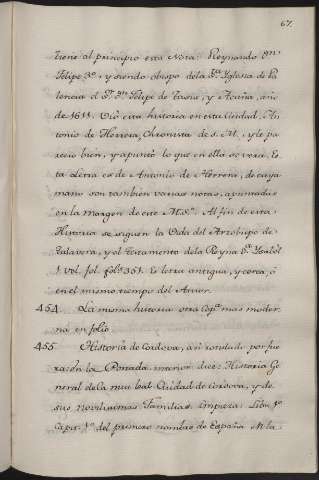 67.
tiene al principio esta Nota: Reynando Dn.
Felipe 3º. y siendo obispo dela Sta. Yglesia de Pa
lencia el Sr. Dn. Felipe de Tasis, y Acuña, año
de 1611. Vió esta historia en esta Ciudad. An
tonio de Herrera, Chronista de S. M., y le pa
reció bien, y apuntó lo que en ella se verá. Es
ta letra es de Antonio de Herrera, de cuya
mano son tambien varias notas, apuntadas
en la margen de este M.S. Al fin de esta
Historia se siguen la Vida del Arzobispo de
Talavera, y el Testamento dela Reyna Dª. Ysabel
1 Vol. fol. folº 351. Es letra antigua, y cerca, ó
en el mismo tiempo del Autor.
454. La misma historia otra Copª. mas moder
na en folio.
455 Historia de Cordova, asi rotulado por fue
ra: en la Portada interior dice: Historia Ge
neral dela muy leal Ciudad de Cordova, y de
sus novilisimas Familias. Empieza: Libº. 1º
Capit. 1º. del primero nombre de España. Mla